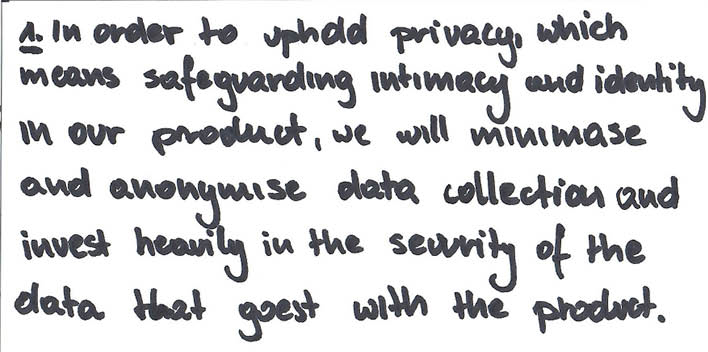 1. In order to uphold privacy, which
means safeguarding intimacy and identity
in our product, we will minimase
and anonymise data collection and
invest heavily in the security of the
data that goest with the product.